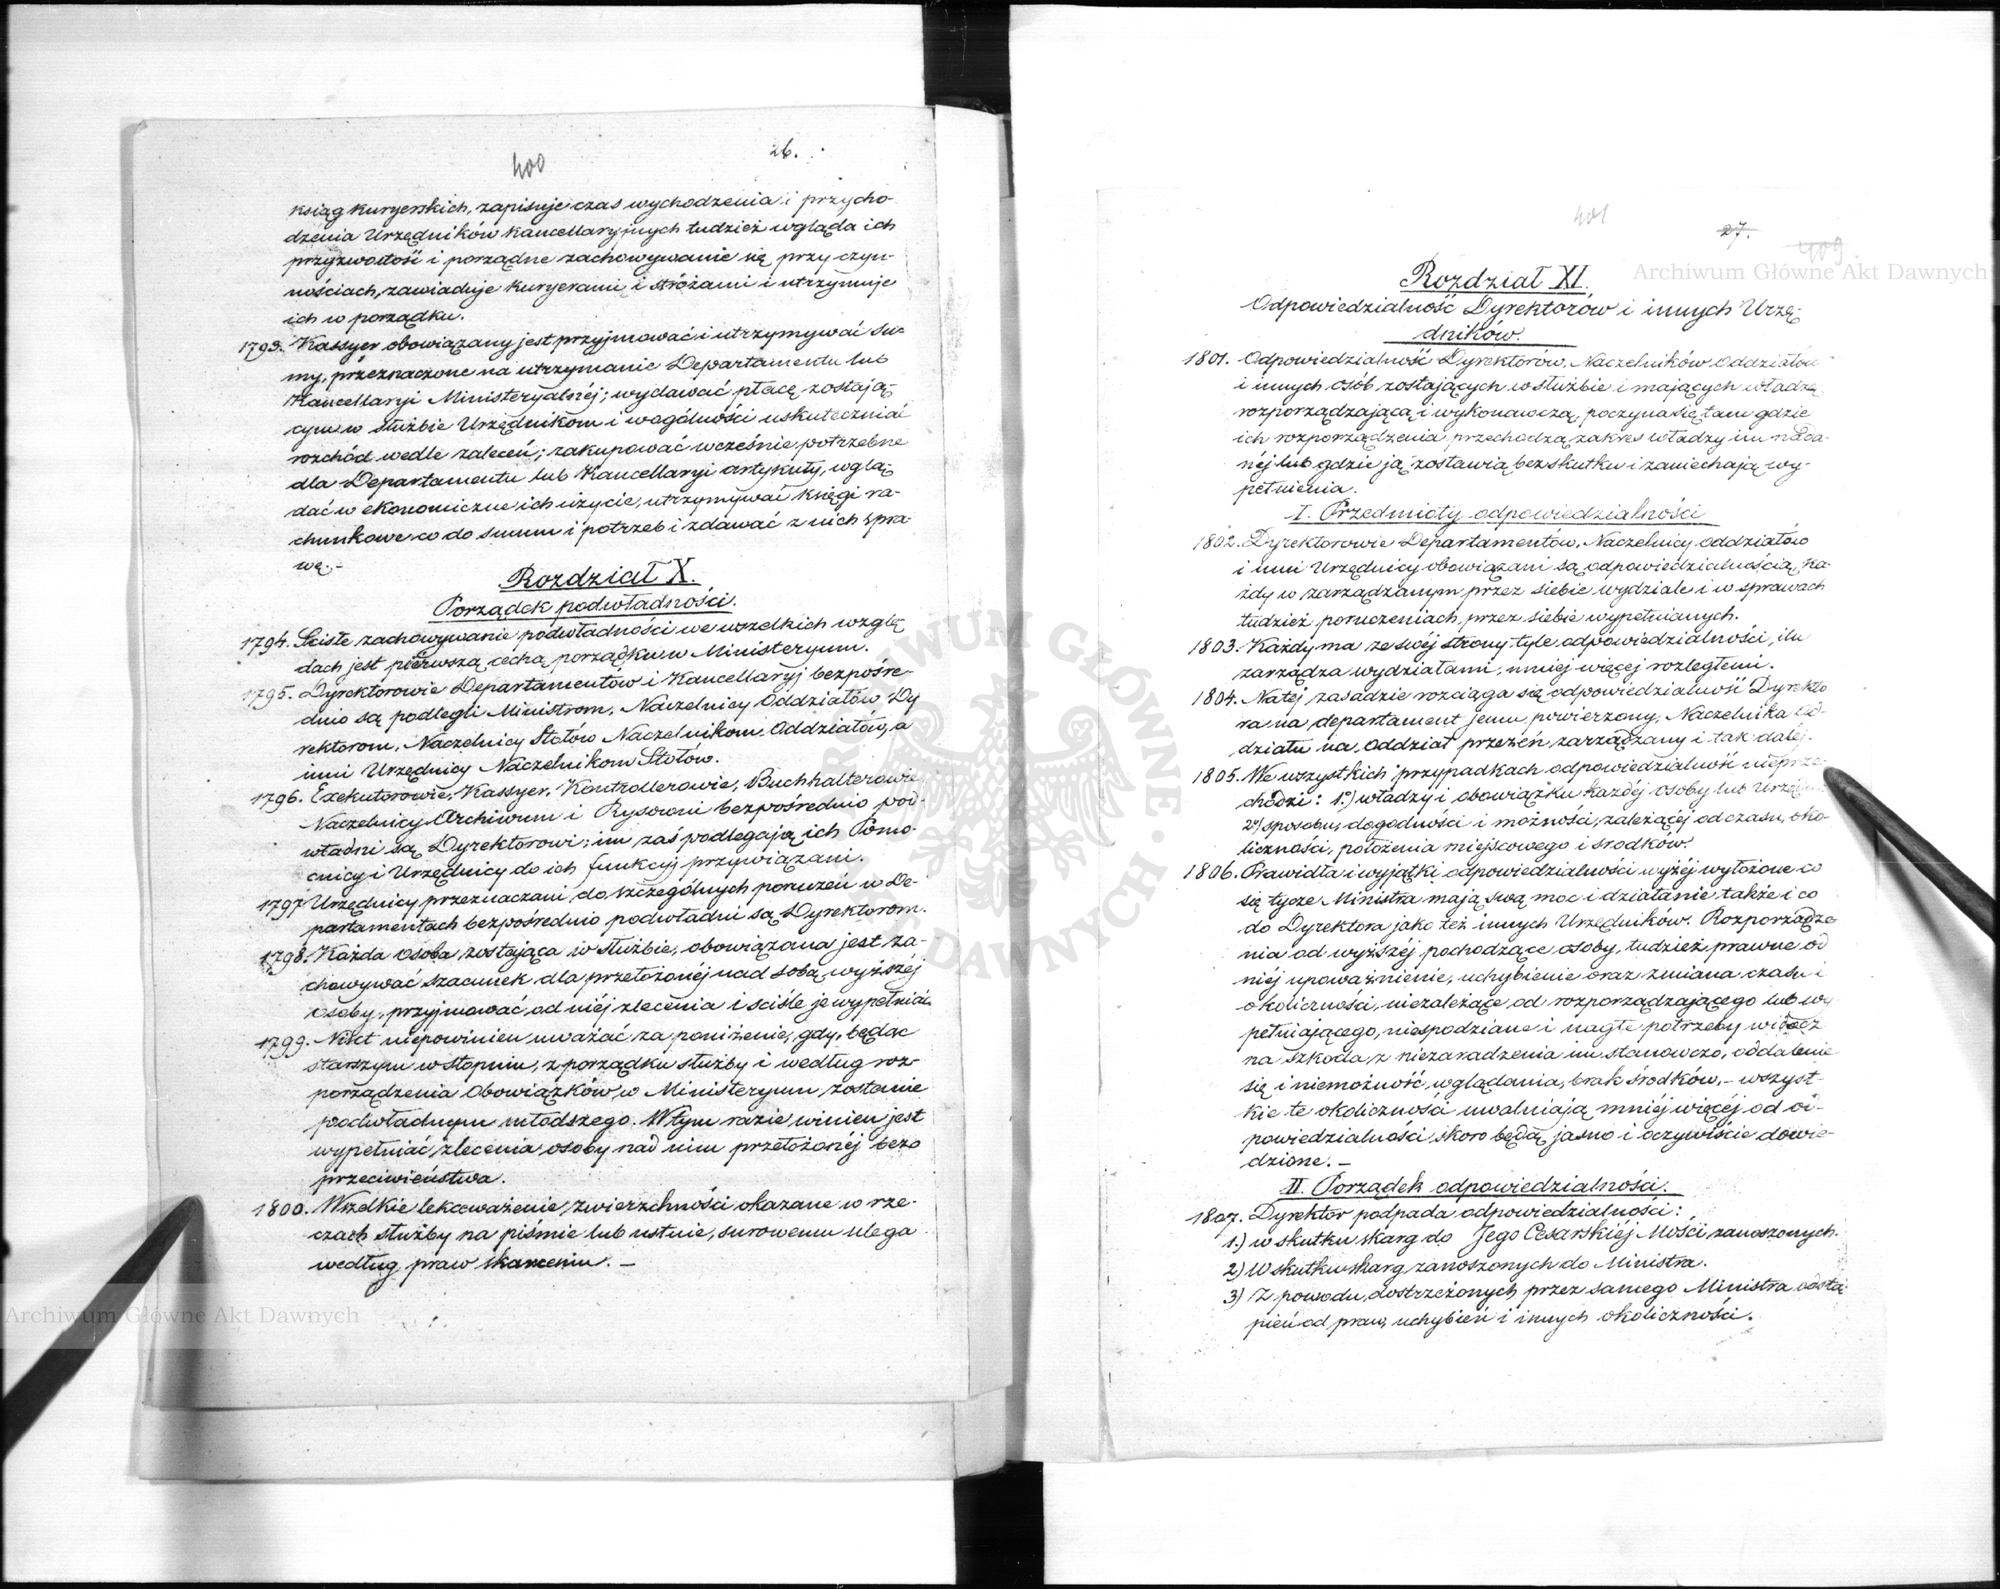 400
26.
ksiąg kuryerskich, zapisuje czas wychodzenia i przycho-
dzenia Urzędników kancellaryjnych tudzież wgląda ich
przyzwoitość i porządne zachowywanie się przy czyn-
nościach, zawiaduje kuryerami i stróżami i utrzymuje
ich w porządku.
1793. Kassyer obowiązany jest przyjmować i utrzymywać su-
my, przeznaczone na utrzymanie Departamentu lub
Kancellaryi Ministeryalnéj; wydawać płacę zostają-
cym w służbie Urzędnikom i wogólności uskuteczniać
rozchód wedle zaleceń; zakupować wcześnie potrzebne
dla Departamentu lub Kancellaryi artykuły, wglą-
dać w ekonomiczne ich użycie, utrzymywać księgi ra-
chunkowe co do summ i potrzeb i zdawać z nich spra-
wę.-
Rozdział X.
Porządek podwładności.
1794. Scisłe zachowywanie podwładności we wszelkich wzglę
dach jest pierwszą cechą porządku w Ministeryum.
1795. Dyrektorowie Departamentów i Kancellaryj bezpośre-
dnio są podlegli Ministrom, Naczelnicy Oddziałów Dy
rektorom, Naczelnicy Stołów Naczelnikom Oddziałów, a
inni Urzędnicy Naczelnikom Stołów.
1796. Exekutorowie, Kassyer, Kontrollerowie, Buchhalterowie
Naczelnicy Archiwum i Rysowni bezpośrednio pod-
władni są Dyrektorowi; im zaś podlegają ich Pomo-
cnicy i Urzędnicy do ich funkcyj przywiązani.
1797 Urzędnicy przeznaczani do szczególnych poruczeń w De-
partamentach bezpośrednio podwładni są Dyrektorom.
1798. Każda osoba, zostająca w służbie, obowiązana jest za-
chowywać szacunek dla przełożonéj nad sobą wyższéj
osoby, przyjmować od niéj zlecenia i sciśle je wypełniać.
1799. Nikt niepowinien uważać za poniżenie, gdy, będąc
starszym w stopniu, z porządku służby i według roz-
porządzenia Obowiązków w Ministeryum, zostanie
podwładnym młodszego. W tym razie winien jest
wypełniać zlecenia osoby nad nim przełożonéj bezo
przeciwieństwa.
1800. Wszelkie lekceważenie zwierzchności okazane w rze-
czach służby na piśmie lub ustnie, surowemu ulega
według praw skarceniu. -
401
27.
409
Rozdział XI.
Odpowiedzialność Dyrektorów i innych Urzę-
dników.
1801. Odpowiedzialność Dyrektorów, Naczelników Oddziałów
i innych osób zostających w służbie i mających władzę
rozporządzającą i wykonawczą, poczyna się tam gdzie
ich rozporządzenia przechodzą zakres władzy im nada-
néj lub gdzie ją zostawią bez skutku i zaniechają wy-
pełnienia.
I. Przedmioty odpowiedzialności
1802. Dyrektorowie Departamentów, Naczelnicy Oddziałów
i inni Urzędnicy obowiązani są odpowiedzialnością ka-
żdy w zarządzanym przez siebie wydziale i w sprawach
tudzież poruczeniach przez siebie wypełnianych.
1803. Każdy ma ze swéj strony tyle odpowiedzialności, ilu
zarządza wydziałami, mniej więcej rozległemi.
1804. Na tej zasadzie rozciąga się odpowiedzialność Dyrekto
ra na departament jemu powierzony, Naczelnika Od-
działu na Oddział przezeń zarządzany i tak dalej.
1805. We wszystkich przypadkach odpowiedzialność nieprze-
chodzi: 1.) władzy i obowiązku każdéj osoby lub
2.) sposobu, dogodności i możności, zależącéj od czasu, oko-
liczności, położenia miejscowego i środków.
1806. Prawidła i wyjątki odpowiedzialności wyżéj wyłożone co
się tycze Ministra mają swą moc i działanie także i co
do Dyrektora jako też innych Urzędników. Rozporządze
nia od wyższéj pochodzące osoby, tudzież prawne od
niéj upoważnienie, uchybienie oraz zmiana czasu i
okoliczności, niezależące od rozporządzającego lub wy
pełniającego, niespodziane i nagłe potrzeby widocz
na szkoda z niezaradzenia im stanowczo, oddalenie
się i niemożność wglądania, brak środków, - wszyst-
kie te okoliczności uwalniają mniéj więcéj od od-
powiedzialności skoro będą jasno i oczywiście dowie-
dzione. -
II. Porządek odpowiedzialności.
1807. Dyrektor podpada odpowiedzialności:
1.) w skutku skarg do Jego Cesarskiéj Mości zanoszonych.
2) W skutku skarg zanoszonych do Ministra.
3) Z powodu dostrzeżonych przez samego Ministra odstą
pień od praw, uchybień i innych okoliczności.
Archiwum Główne Akt Dawnych
Archiwum Główne Akt Dawnych
ARCHIWUM GŁÓWNE AKT DAWNYCH